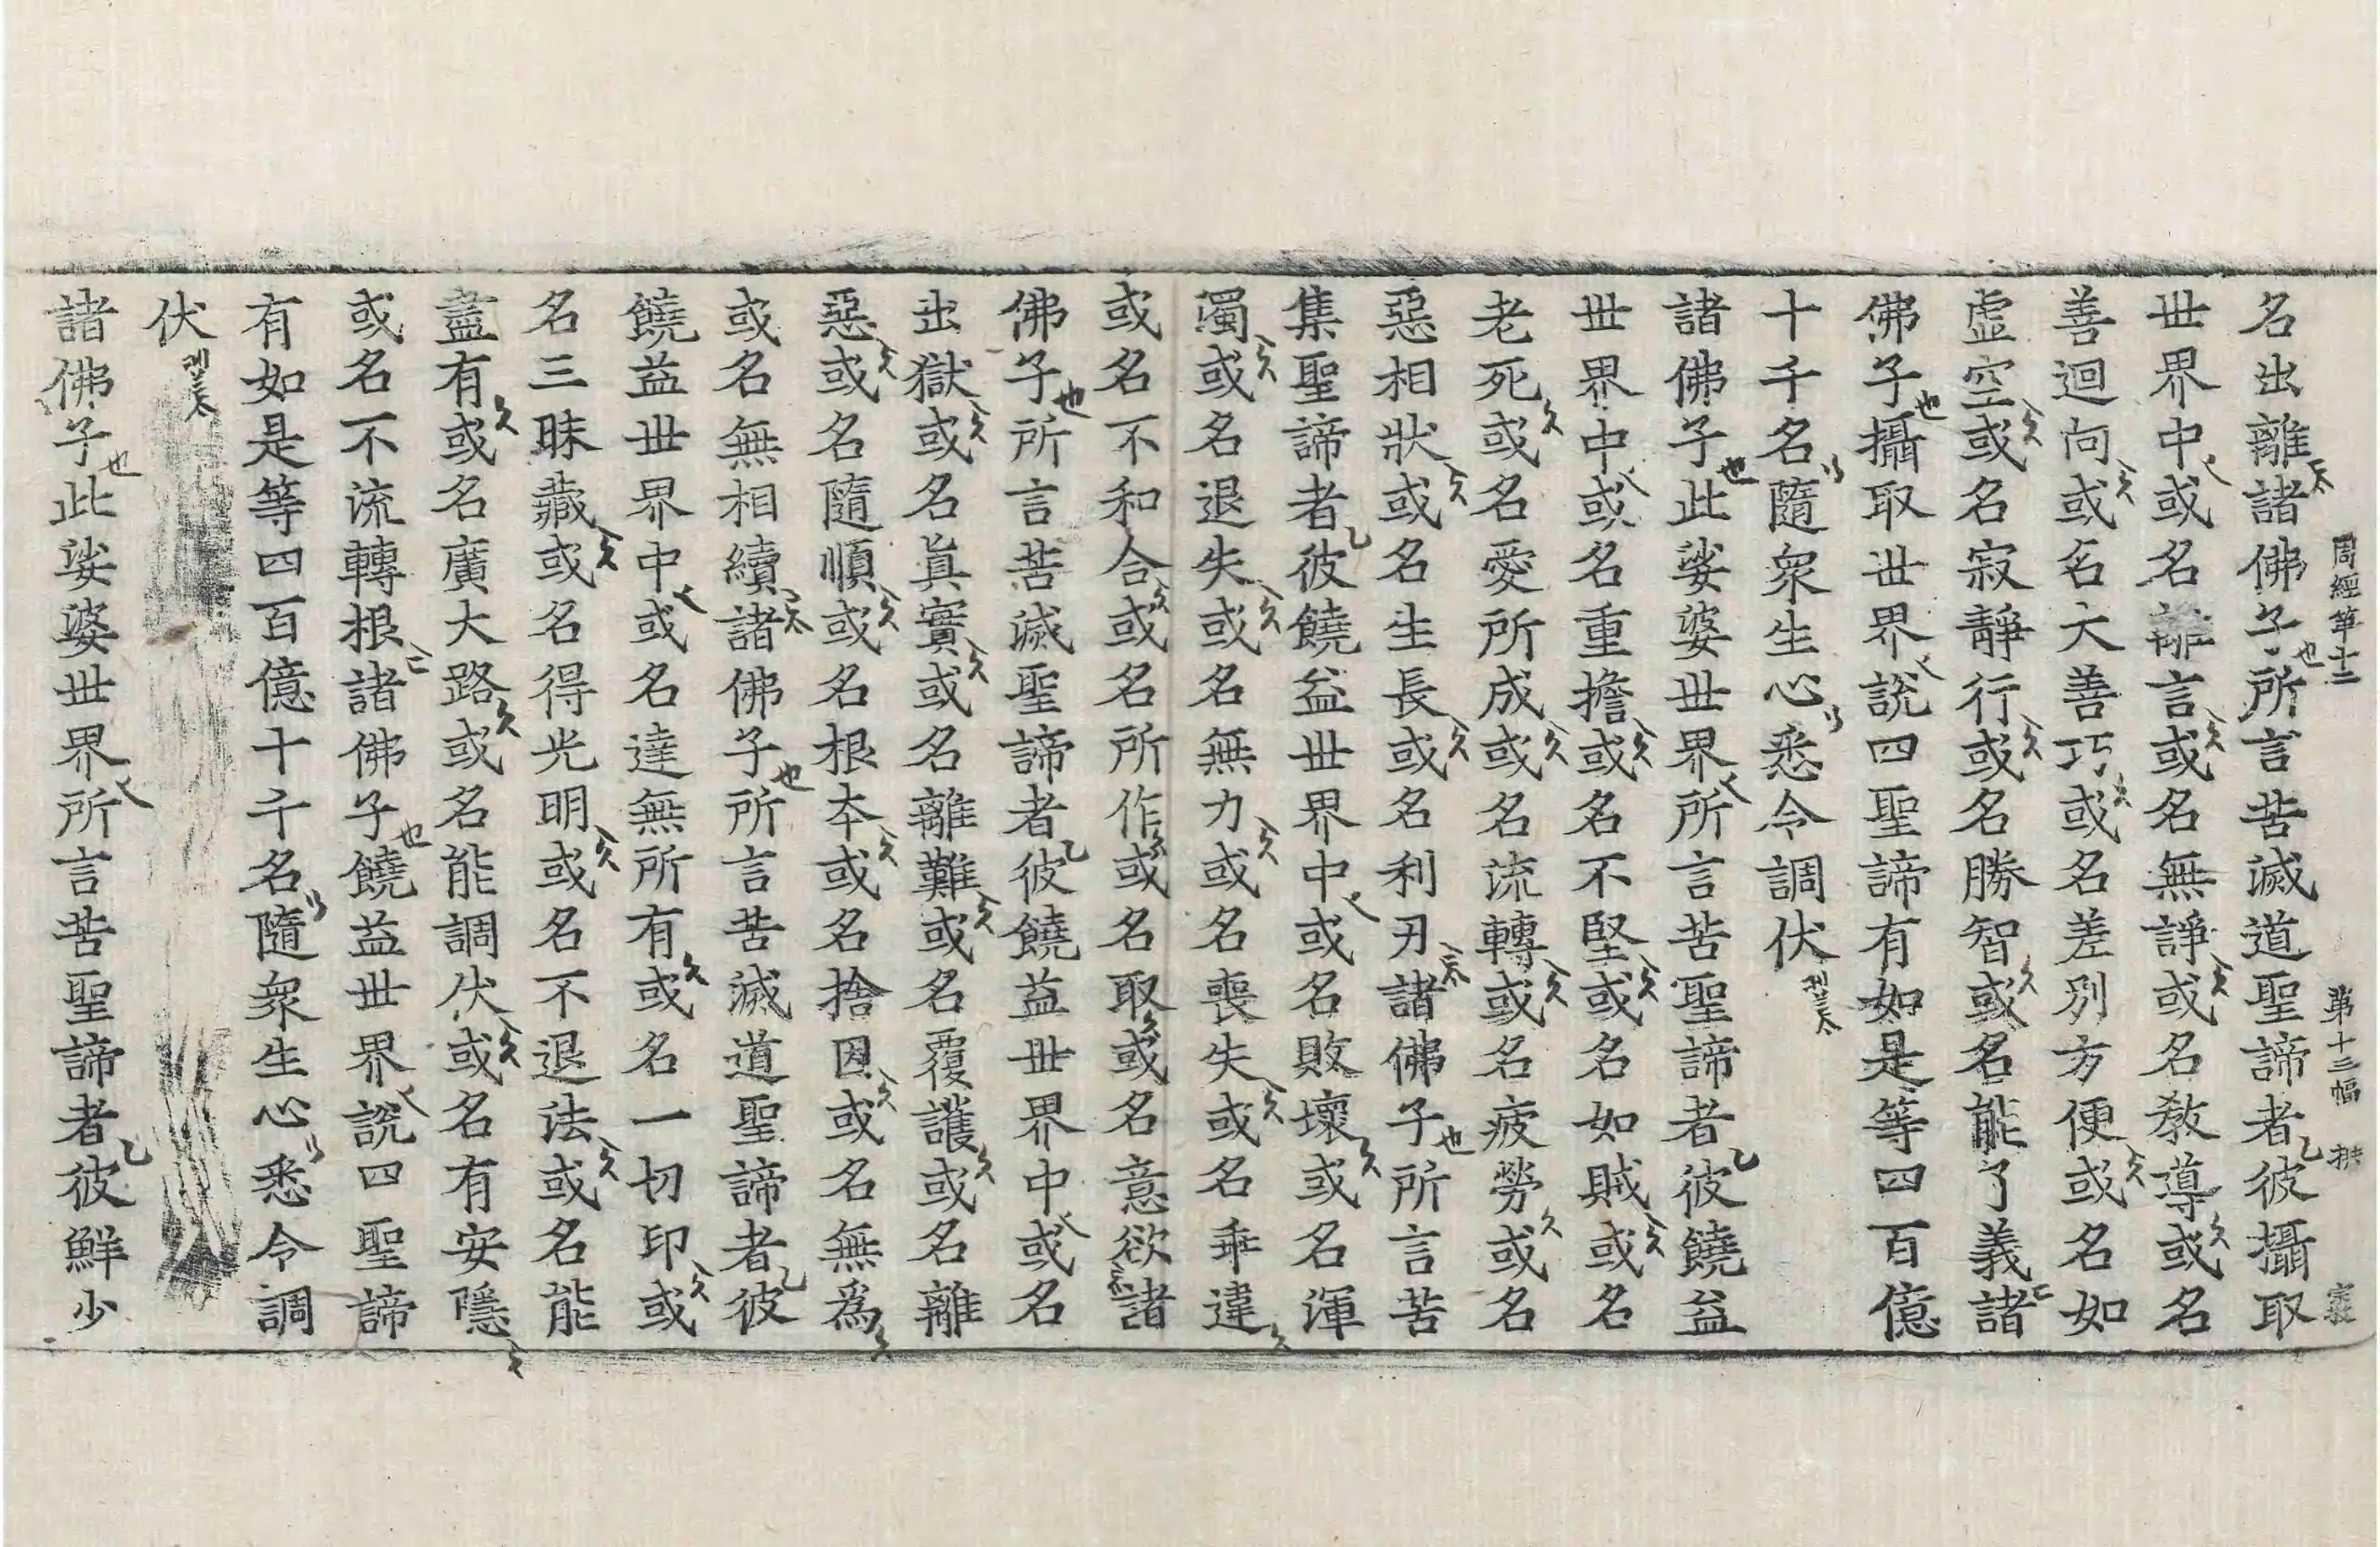 周經第十二 第十三幅 拱
名出離諸佛子所言苦滅道聖諦者彼攝取
世界中或名離言或名無諍或名教導或名
善迴向或名大善巧或名差別方便或名如
虛空或名寂靜行或名勝智或名能了義諸
佛子攝取世界說四聖諦有如是等四百億
十千名隨衆生心悉令調伏
諸佛子此娑婆世界所言苦聖諦者彼饒益
世界中或名重擔或名不堅或名如賊或名
老死或名愛所成或名流轉或名疲勞或名
惡相狀或名生長或名利刃諸佛子所言苦
集聖諦者彼饒益世界中或名敗壞或名渾
濁或名退失或名無力或名喪失或名乖違
或名不和合或名所作或名取或名意欲諸
佛子所言苦滅聖諦者彼饒益世界中或名
出獄或名眞實或名離難或名覆護或名離
惡或名隨順或名根本或名捨因或名無爲
或名無相續諸佛子所言苦滅道聖諦者彼
饒益世界中或名達無所有或名一切印或
名三昧藏或名得光明或名不退法或名能
盡有或名廣大路或名能調伏或名有安隱
或名不流轉根諸佛子饒益世界說四聖諦
有如是等四百億十千名隨衆生心悉令調
伏
諸佛子此娑婆世界所言苦聖諦者彼鮮少